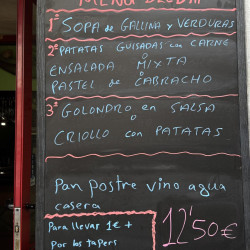 MENÚ
1º SOPA de GALLINA y VERDURAS
2º PATATAS GUISADAS con CARNE
o
ENSALADA MIXTA
o
PASTEL de CABRACHO
3º GOLONDRO en SALSA
o
CRIOLLO con PATATAS
Pan postre vino agua
casera
Para llevar 1€ +
Por los tapers
12'50€